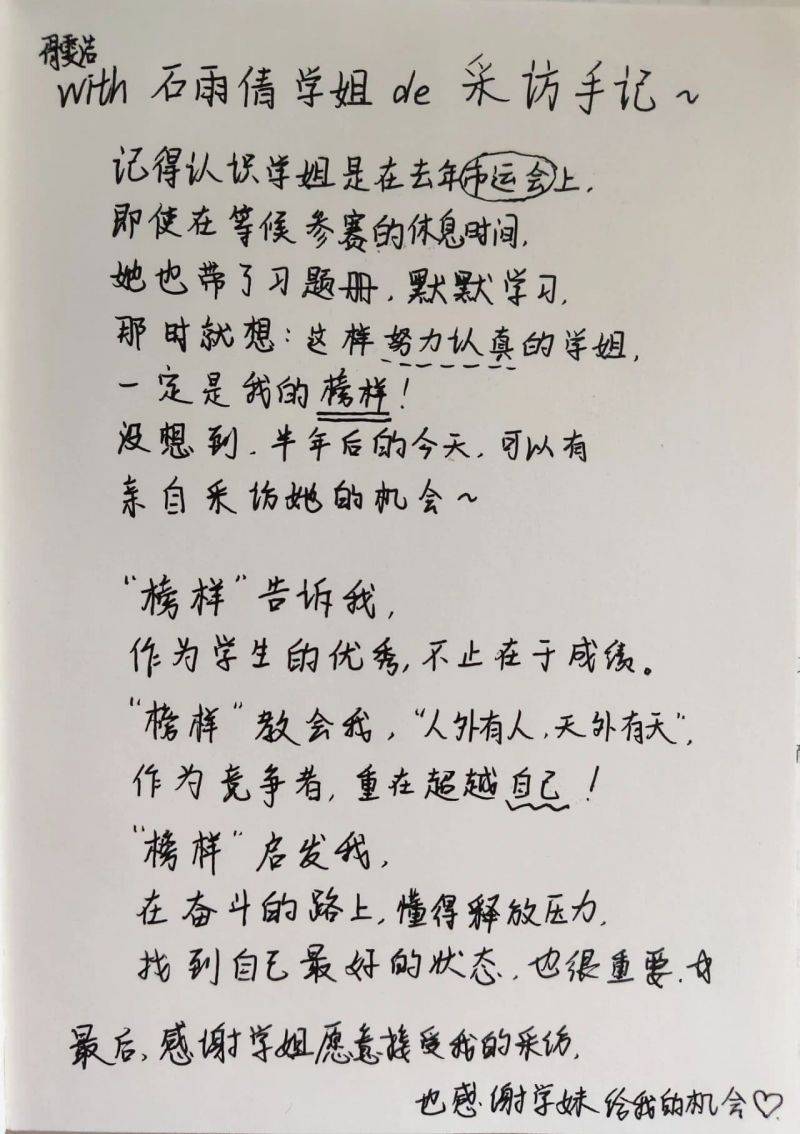 with 石雨倩学姐 de 采访手记～
记得认识学姐是在去年市运会上，
即使在等候参赛的休息时间，
她也带了习题册，默默学习，
那时就想：这样努力认真的学姐，
一定是我的榜样！
没想到，半年后的今天，可以有
亲自采访她的机会～
“榜样”告诉我，
作为学生的优秀，不止在于成绩。
“榜样”教会我，“人外有人，天外有天”，
作为竞争者，重在超越自己！
“榜样”启发我，
在奋斗的路上，懂得释放压力，
找到自己最好的状态，也很重要．
最后，感谢学姐愿意接受我的采访，
也感谢学妹给我的机会♡